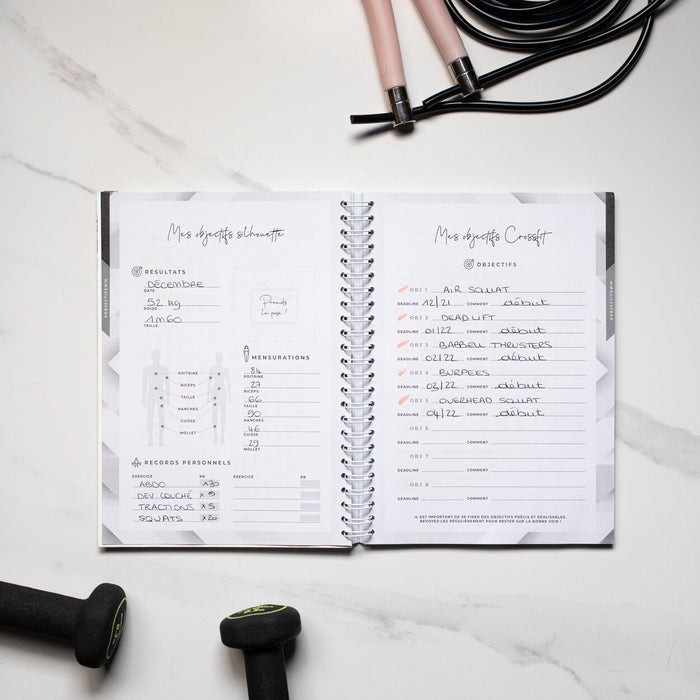 Mes objectifs silhouette
RÉSULTATS
Décembre
DATE
52 kg
POIDS
1m60
TAILLE
Prends
la pose !
MENSURATIONS
POITRINE
BICEPS
TAILLE
HANCHES
CUISSE
MOLLET
84
POITRINE
27
BICEPS
66
TAILLE
90
HANCHES
46
CUISSE
29
MOLLET
RECORDS PERSONNELS
EXERCICE PR EXERCICE PR
ABDO x30
DEV. COUCHÉ x 5
TRACTIONS x 5
SQUATS x20
Mes objectifs Crossfit
OBJECTIFS
OBJ 1 AIR SQUAT
DEADLINE 12/21 COMMENT début
OBJ 2 DEADLIFT
DEADLINE 01/22 COMMENT début
OBJ 3 BARBELL THRUSTERS
DEADLINE 02/22 COMMENT début
OBJ 4 BURPEES
DEADLINE 03/22 COMMENT début
OBJ 5 OVERHEAD SQUAT
DEADLINE 04/22 COMMENT début
OBJ 6
DEADLINE COMMENT
OBJ 7
DEADLINE COMMENT
OBJ 8
DEADLINE COMMENT
IL EST IMPORTANT DE SE FIXER DES OBJECTIFS PRÉCIS ET RÉALISABLES.
REVOYEZ-LES RÉGULIÈREMENT POUR RESTER SUR LA BONNE VOIE !